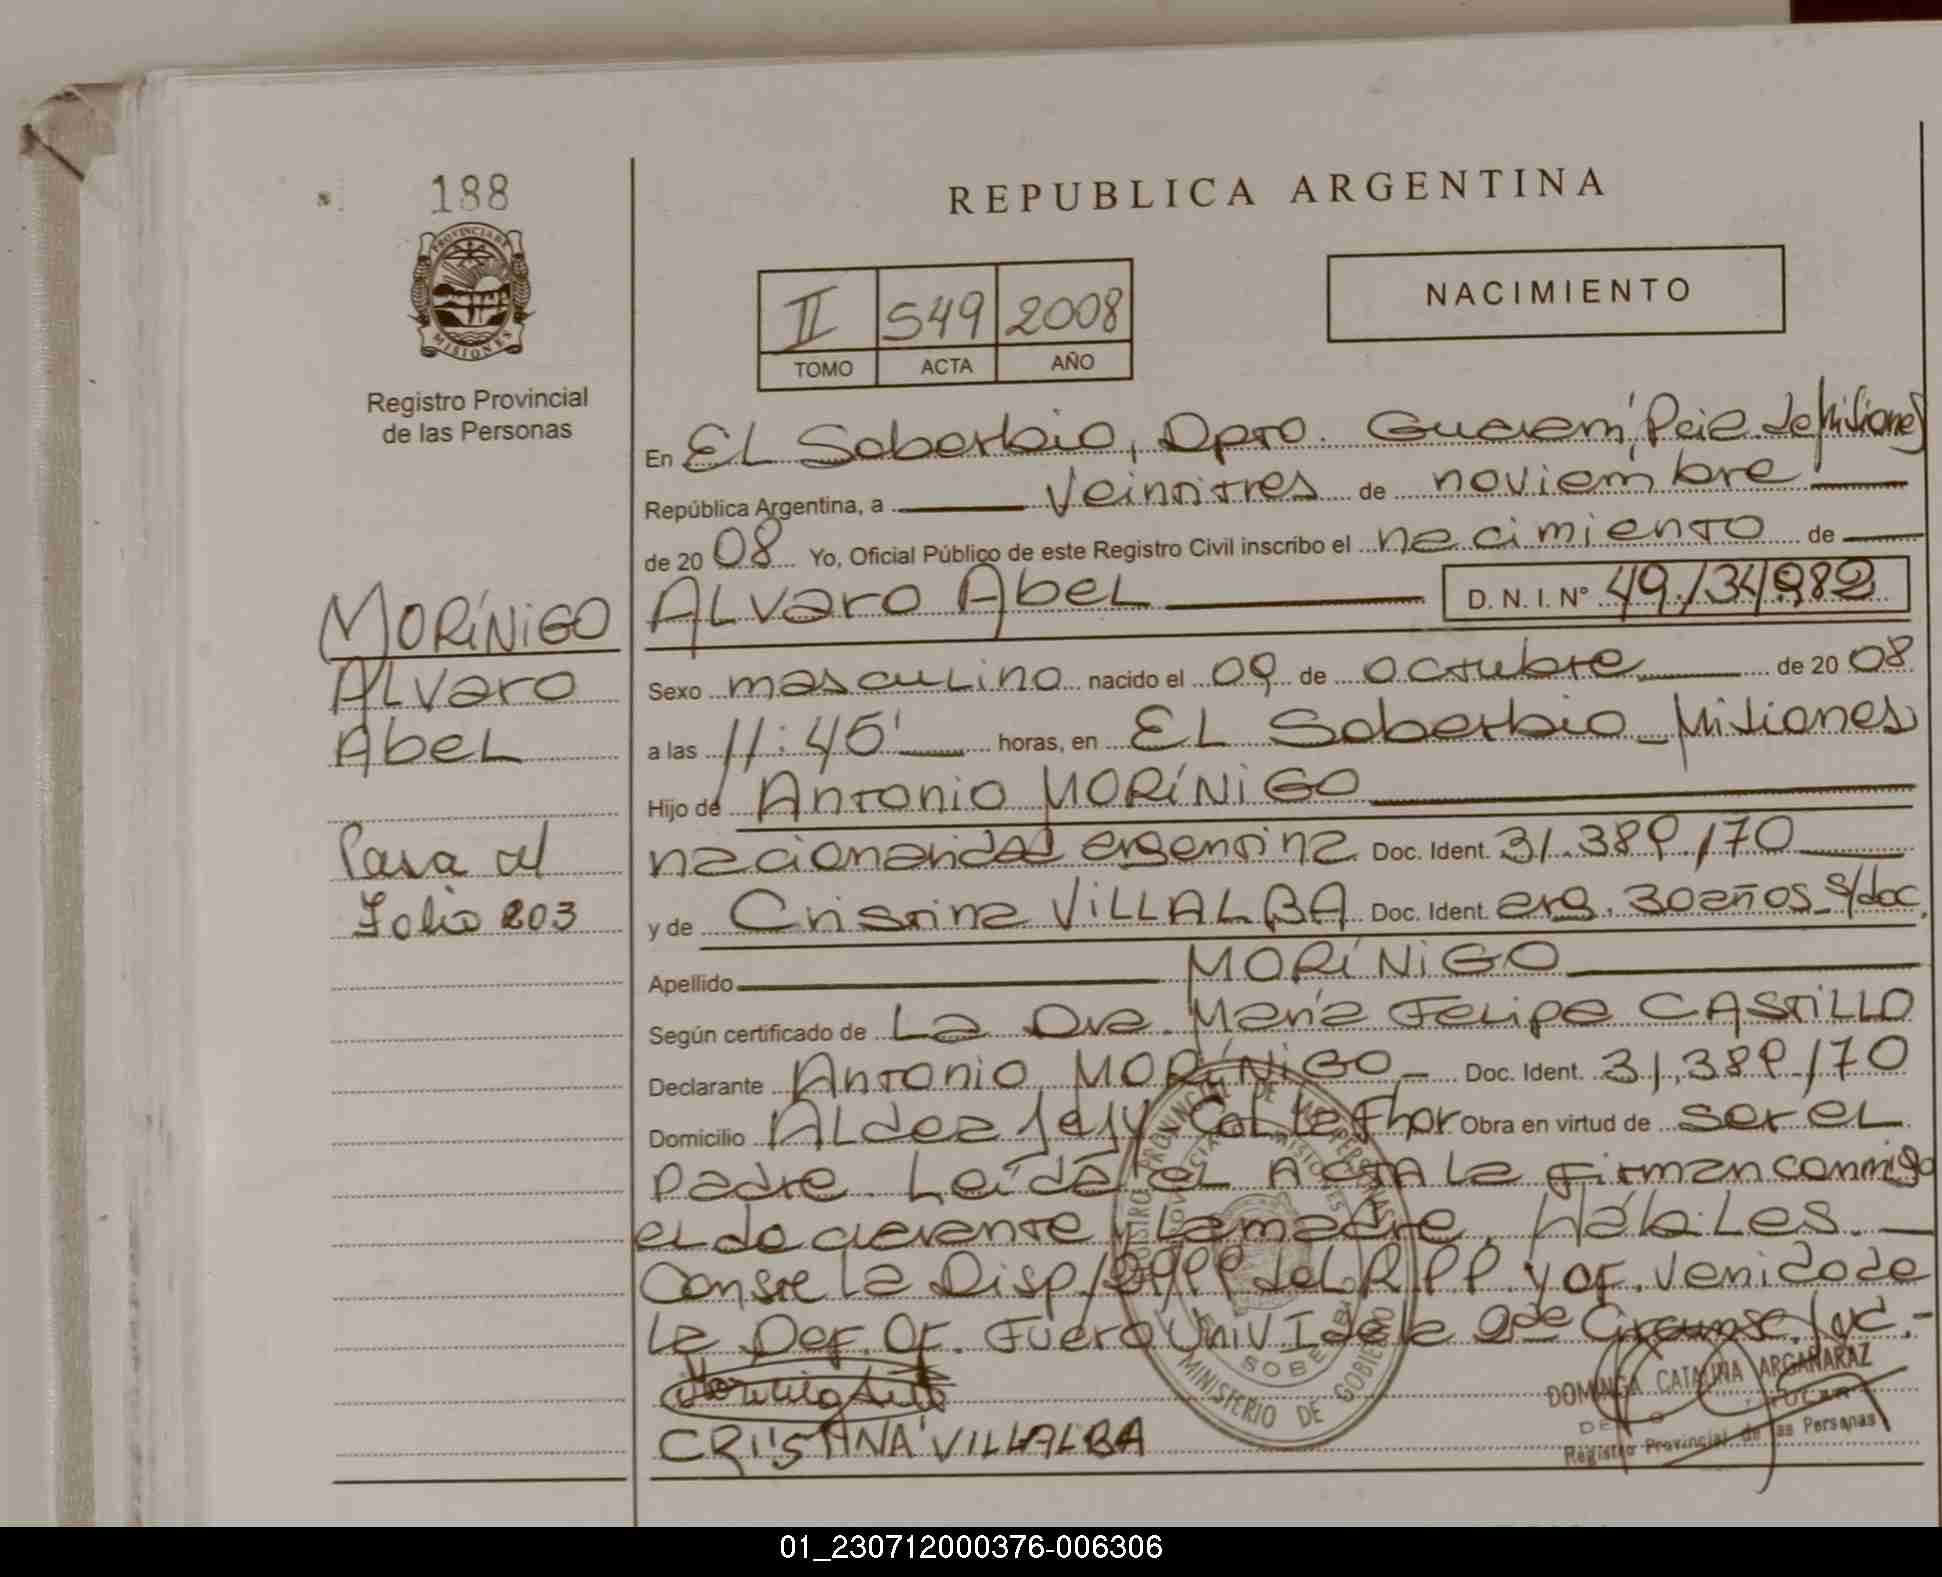 188
PROVINCIA DE
MISIONES
Registro Provincial
de las Personas
REPUBLICA ARGENTINA
NACIMIENTO
II 549 2008
TOMO ACTA AÑO
En EL Soberbio, Dpto. Guaraní, Pcia. de Misiones
República Argentina, a Veintitres de noviembre
de 2008 Yo, Oficial Público de este Registro Civil inscribo el nacimiento de
ALvaro AbeL D. N. I. N° 49.134.982
Sexo mascuLino nacido el 09 de octubre de 2008
a las 11:45' horas, en EL Soberbio - Misiones
Hijo de Antonio MORíNiGO
nacionalidad argentina Doc. Ident. 31.389.170
y de Cristina ViLLALBA Doc. Ident. arg. 30 años - s/doc.
Apellido MORíNiGO
Según certificado de La Dra. María Felipa CASTiLLO
Declarante Antonio MORíNiGO - Doc. Ident. 31.389.170
Domicilio ALdea Obra en virtud de ser eL
padre. Leída eL ACTA la firman conmigo
eL declarante y La madre. HábiLes.
Conste la Disp. deL R.P.P. y of. venido de
La Def. Of. Fuero Univ. I de la
CRISTINA VILLALBA
MORíNiGO
ALvaro
AbeL
Pasa al
Folio 203
MINISTERIO DE GOBIERNO
DOMINGA CATALINA ARGAÑARAZ
Registro Provincial de las Personas
01_230712000376-006306